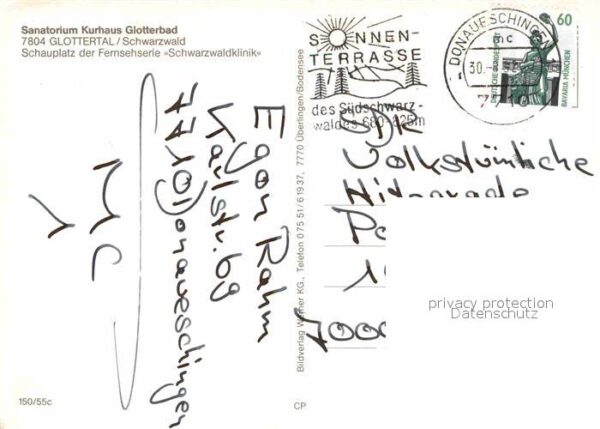 Sanatorium Kurhaus Glotterbad
7804 GLOTTERTAL/Schwarzwald
Schauplatz der Fernsehserie »Schwarzwaldklinik«
Egon Rahm
Karlstr. 69
7710 Donaueschingen
MC
1
150/55c
CP
Bildverlag Werner KG., Telefon 0 75 51/6 19 37, 7770 Überlingen/Bodensee
SONNEN-
TERRASSE
des Südschwarz-
waldes 680-825m
DONAUESCHINGEN
mc
30.
60
DEUTSCHE BUNDESPOST
BAVARIA MÜNCHEN
SDR
Volkstümliche
Hitparade
Po
1
7000
privacy protection
Datenschutz